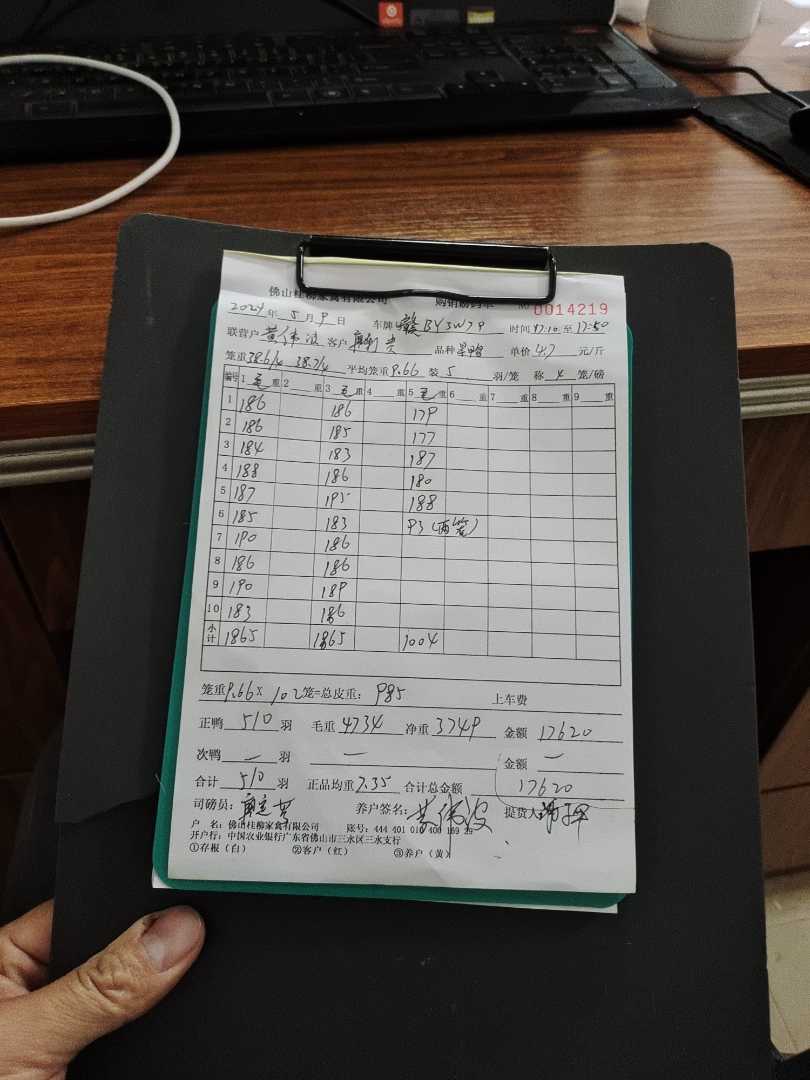 佛山桂柳家禽有限公司 购销磅码单 № 0014219
2024年5月9日 车牌 赣BY3W79 时间 17:10 至 17:50
联营户 黄伟波 客户 品种 单价 4.7 元/斤
笼重 38.6/4 38.7/4 平均笼重 9.66 装 5 羽/笼 称 4 笼/磅
编号 1 毛 重 2 重 3 毛 重 4 重 5 毛 重 6 重 7 重 8 重 9 重
1 186 186 179
2 186 185 177
3 184 183 187
4 188 186 180
5 187 195 188
6 185 183 93 (两笼)
7 190 186
8 186 186
9 190 189
10 183 186
小计 1865 1865 1004
笼重 9.66 × 102 笼=总皮重: 985 上车费
正鸭 510 羽 毛重 4734 净重 3749 金额 17620
次鸭 — 羽 — 金额 —
合计 510 羽 正品均重 7.35 合计总金额 17620
司磅员: 养户签名: 黄伟波 提货人
户 名: 佛山桂柳家禽有限公司 账号: 444 401 010 400 169 29
开户行: 中国农业银行广东省佛山市三水区三水支行
①存根(白) ②客户(红) ③养户(黄)